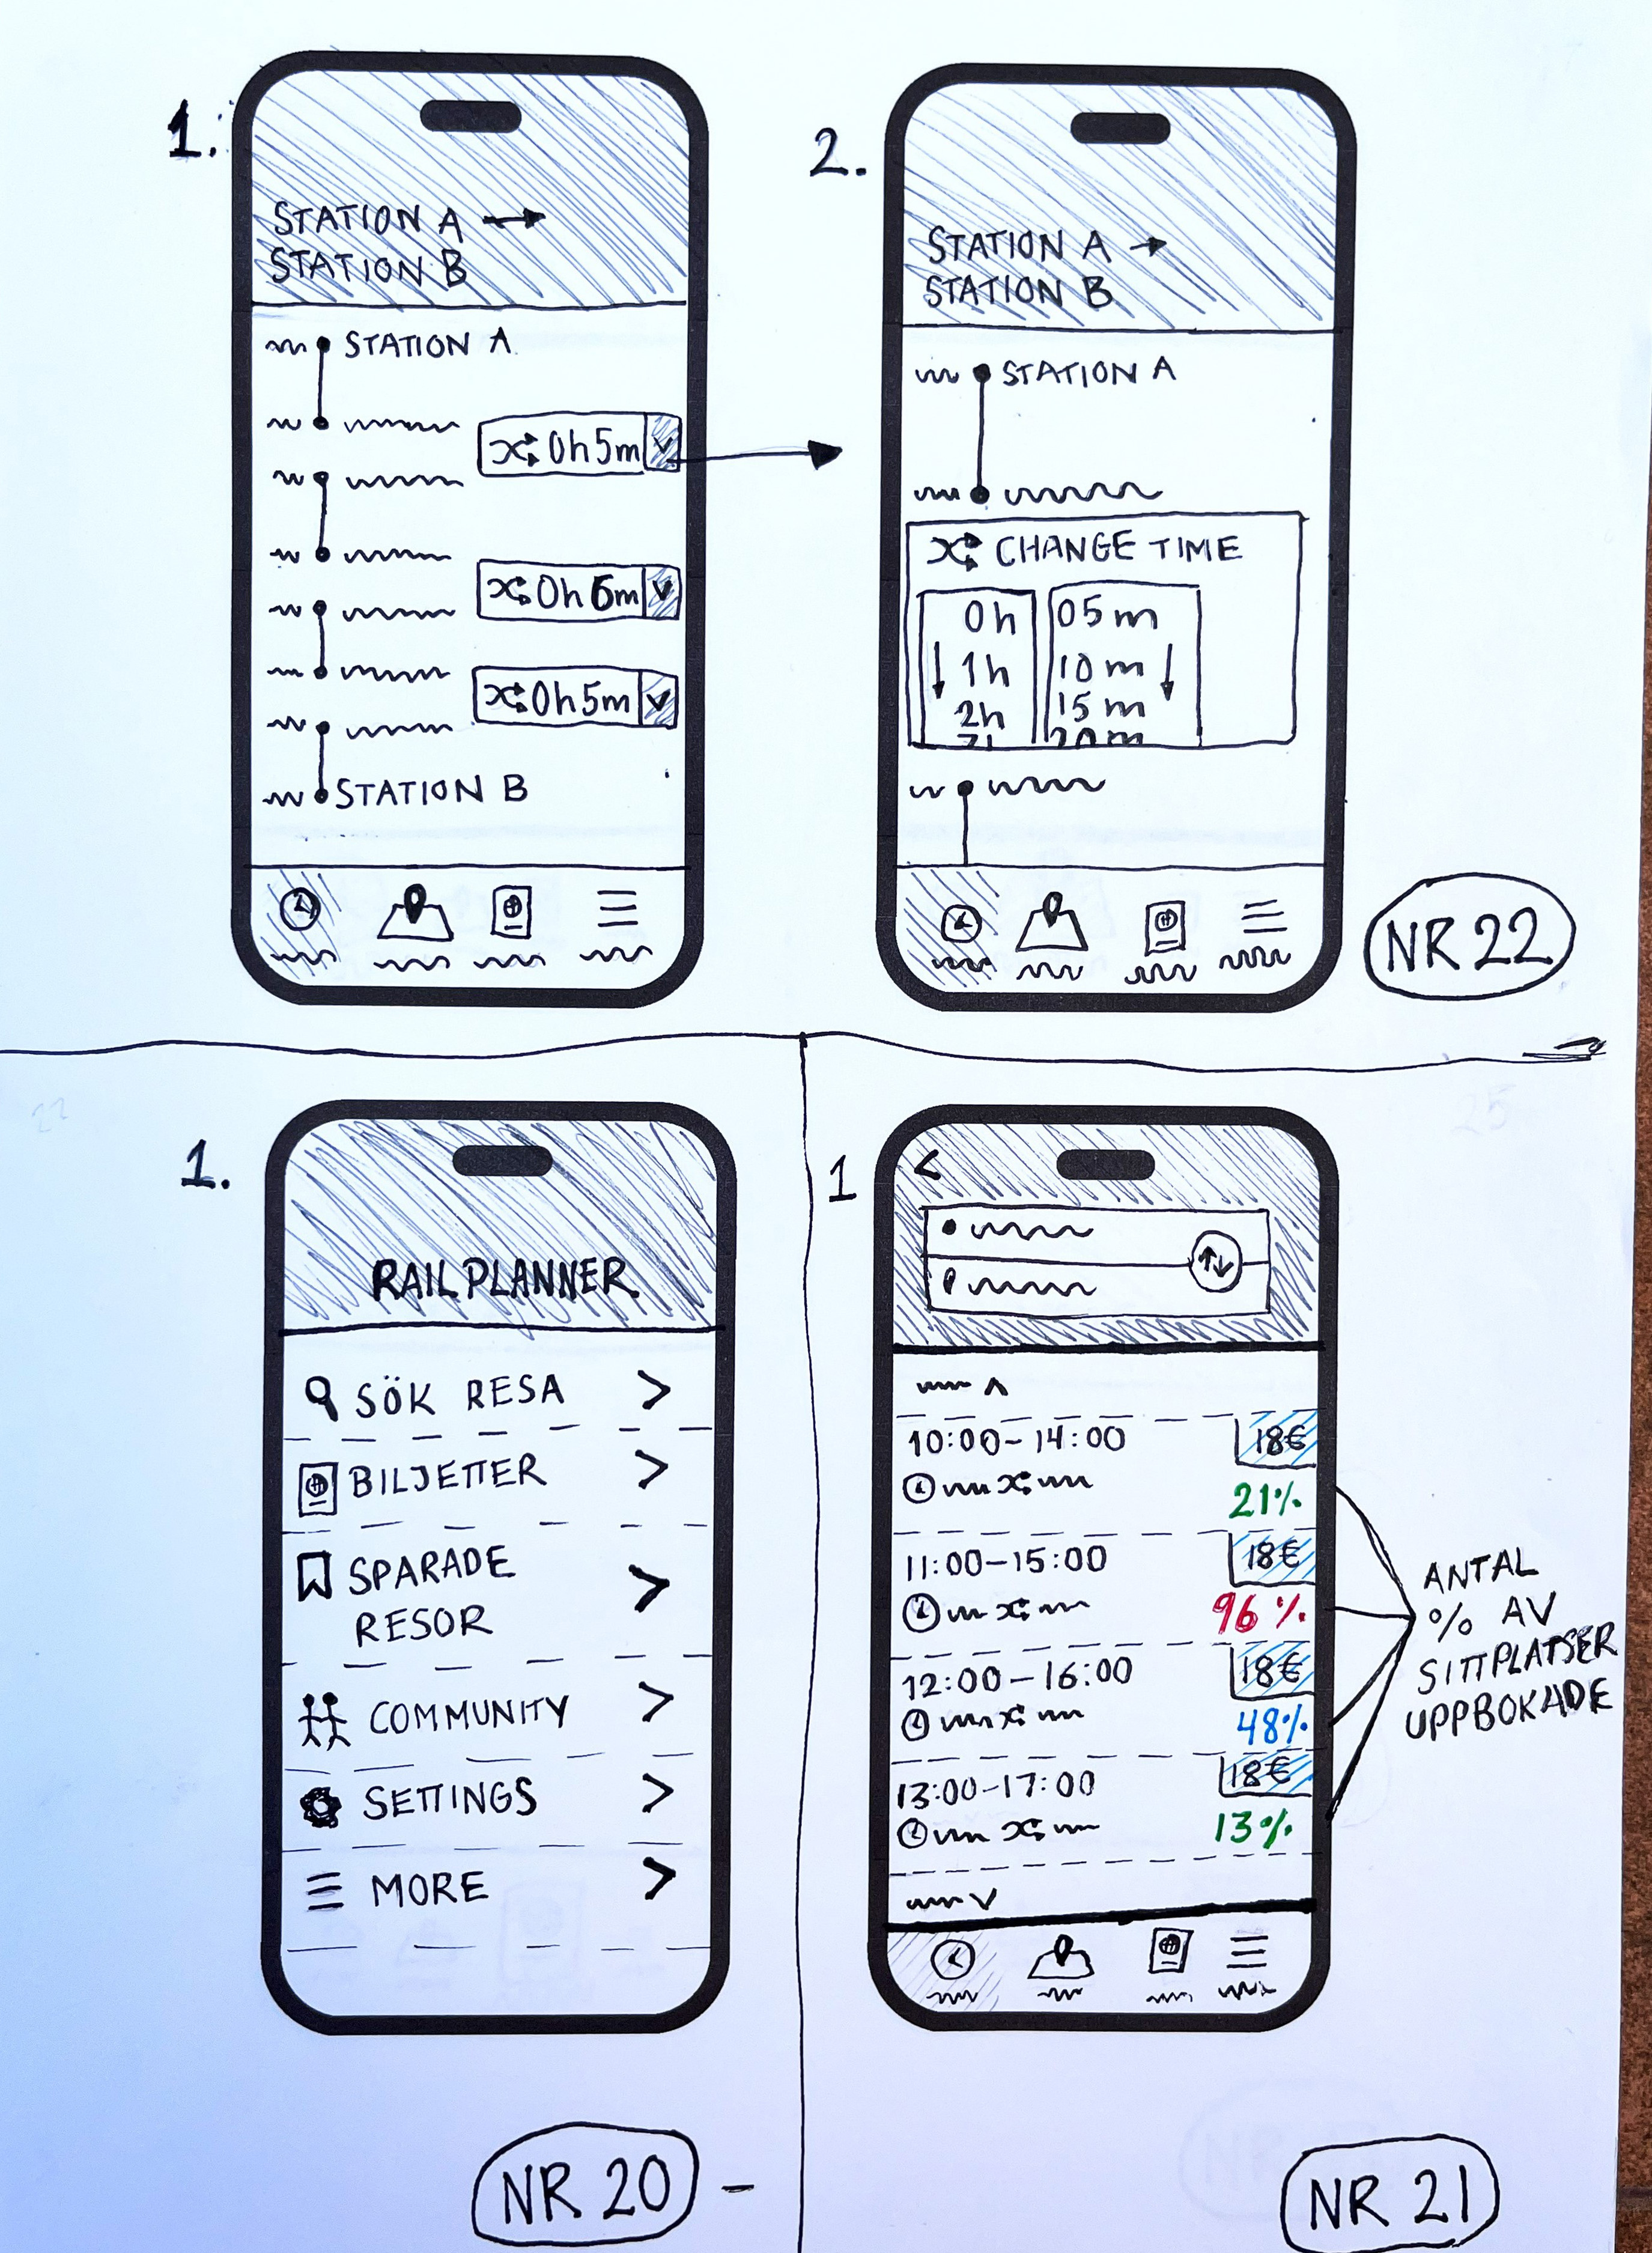 1.
STATION A →
STATION B
STATION A
0h5m
0h6m
0h5m
STATION B
2.
STATION A →
STATION B
STATION A
CHANGE TIME
0h 05m
1h 10m
2h 15m
20m
NR 22
1.
RAIL PLANNER
SÖK RESA >
BILJETTER >
SPARADE
RESOR >
COMMUNITY >
SETTINGS >
MORE >
NR 20 -
1
<
10:00-14:00 18€
21%
11:00-15:00 18€
96%
12:00-16:00 18€
48%
13:00-17:00 18€
13%
ANTAL
% AV
SITTPLATSER
UPPBOKADE
NR 21